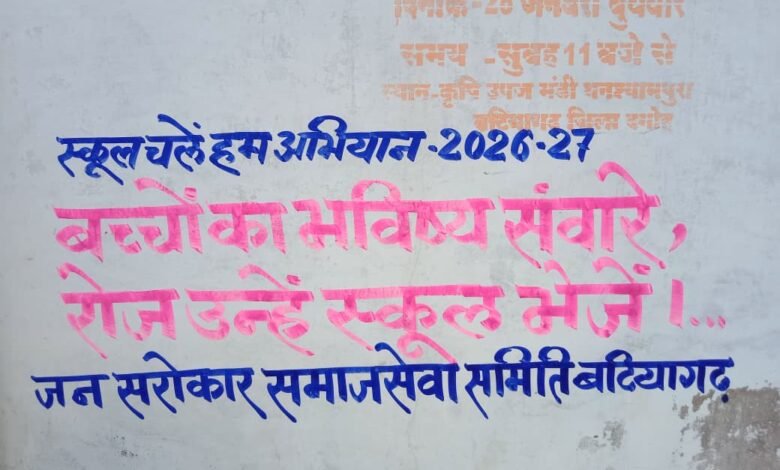 दिनांक-28 जनवरी बुधवार
समय - सुबह 11 बजे से
स्थान-कृषि उपज मंडी घनश्यामपुरा
बटियागढ़ जिला दमोह
स्कूल चलें हम अभियान-2026-27
बच्चों का भविष्य संवारे,
रोज उन्हें स्कूल भेजें।...
जन सरोकार समाजसेवा समिति बटियागढ़